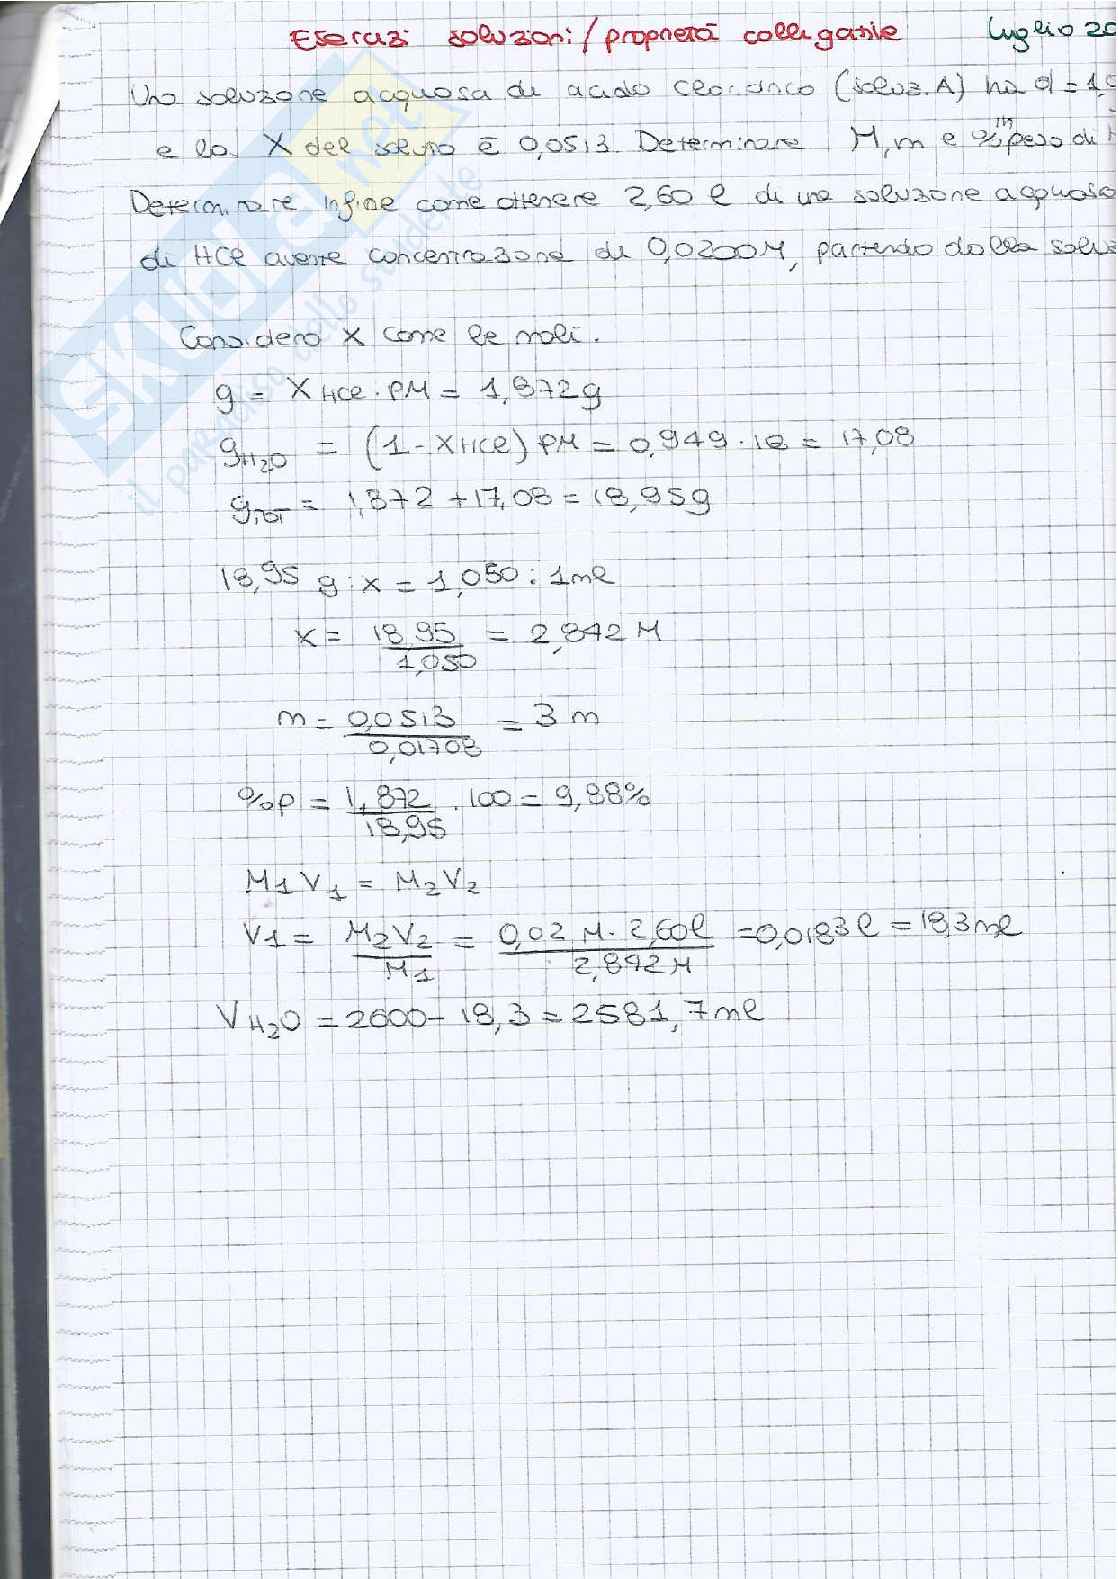 Esercizi soluzioni/proprietà colligative Luglio 20
Una soluzione acquosa di acido cloridrico (soluz. A) ha d = 1,0
e la X del soluto è 0,0513. Determinare M, m e % in peso di
Determinare infine come ottenere 2,60 l di una soluzione acquosa
di HCl avente concentrazione di 0,0200M, partendo dalla soluz
Considero X come le moli.
g = X HCl · PM = 1,872g
gH2O = (1 - XHCl) PM = 0,949 · 18 = 17,08
gTOT = 1,872 + 17,08 = 18,95g
18,95 g : x = 1,050 : 1ml
x = 18,95 / 1,050 = 2,842 M
m = 0,0513 / 0,01708 = 3 m
%p = 1,872 / 18,95 · 100 = 9,88%
M1V1 = M2V2
V1 = M2V2 / M1 = 0,02 M · 2,60l / 2,842 M = 0,0183 l = 18,3ml
VH2O = 2600 - 18,3 = 2581,7ml
SKUOLA.net
il paradiso dello studente